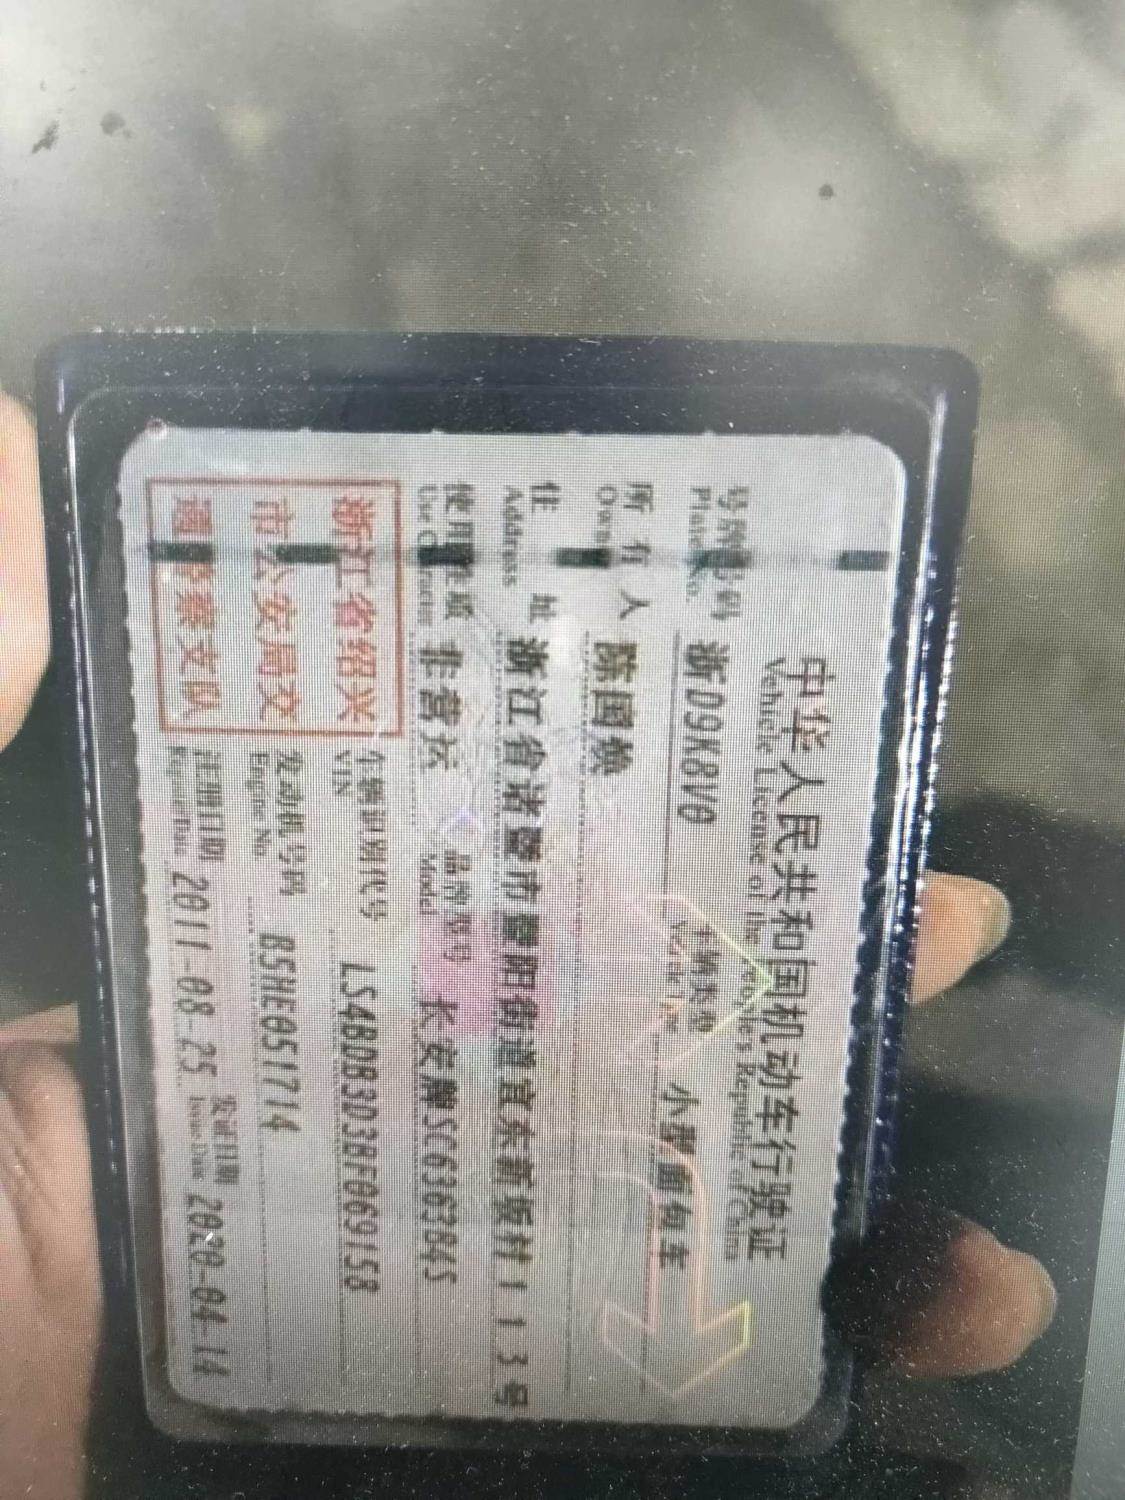 中华人民共和国机动车行驶证
Vehicle License of the People's Republic of China
号牌号码 浙D9K8V0 车辆类型 小型面包车
Plate No. Vehicle Type
所有人 陈国焕
Owner
住址 浙江省诸暨市暨阳街道宜东新板村113号
Address
使用性质 非营运 品牌型号 长安牌SC6363B4S
Use Character Model
浙江省绍兴
市公安局交
通警察支队
车辆识别代号 LS4BDB3D3BF069158
VIN
发动机号码 B5HE051714
Engine No.
注册日期 2011-08-25 发证日期 2020-04-14
Register Date Issue Date